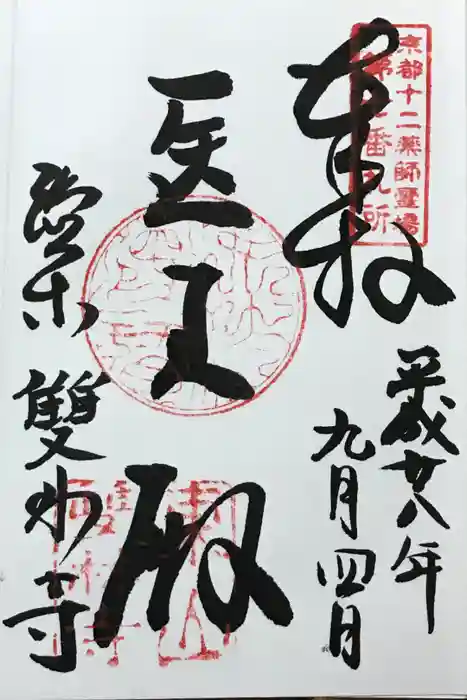 京都十二薬師霊場
番札所
奉拝
平成廿八年
九月四日
医王殿
雙林寺
東山
雙林寺